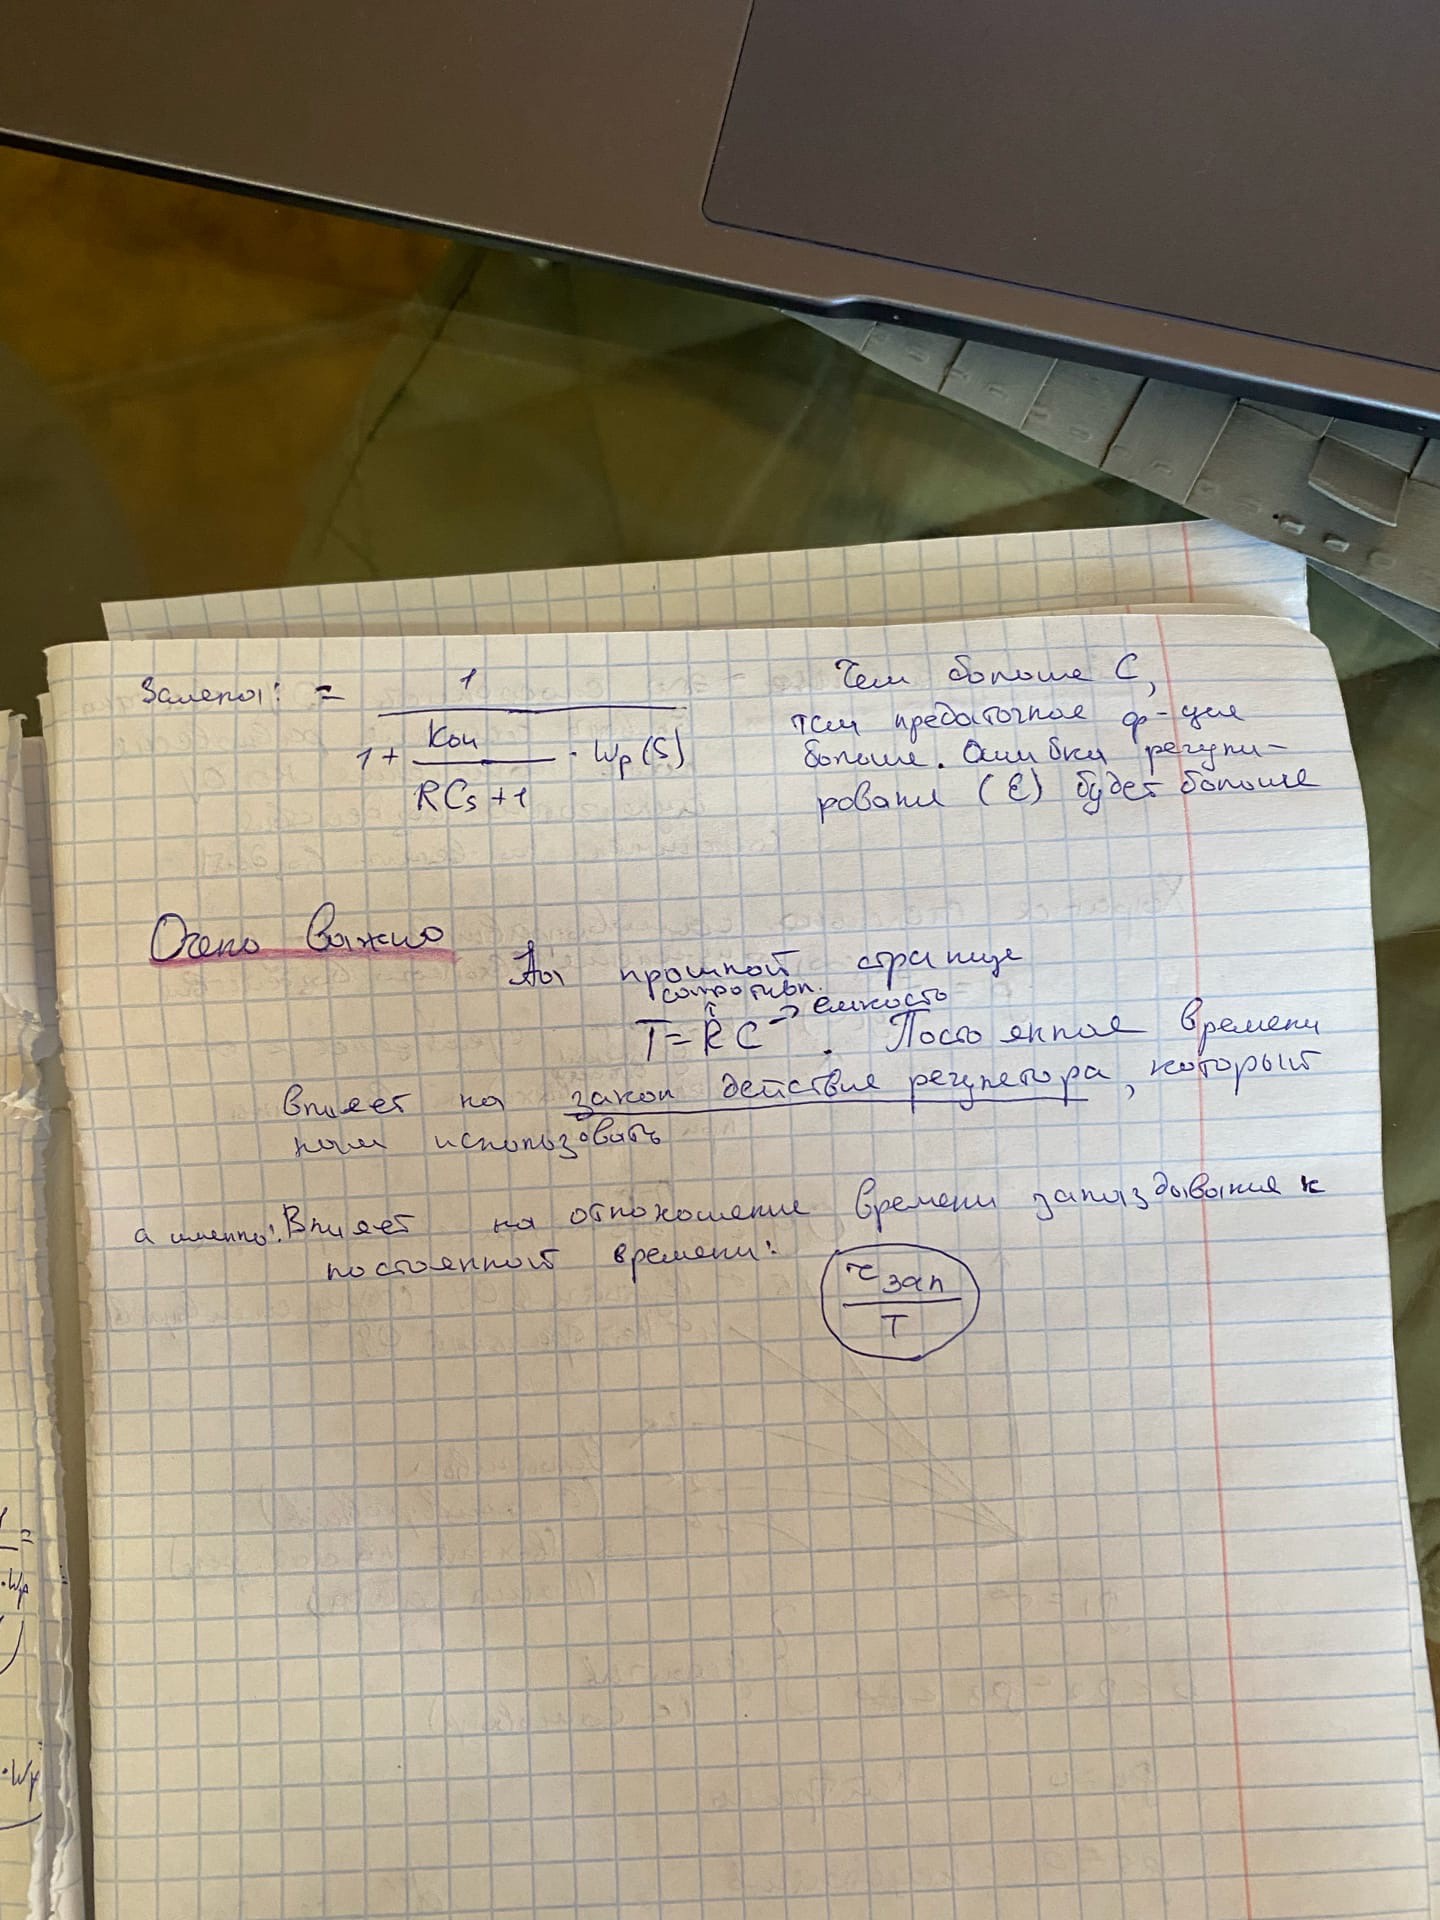 Замена: = 1
1 + Kou / RCs + 1 · Wp(S)
Чем больше C,
тем предаточная ф-ция
больше. Ошибка регули-
рования (ε) будет больше
Очень важно
На прошлой странице
сопротивл.
T = RC → ёмкость
. Постоянная времени
влияет на закон действия регулятора, который
нам использовать
а именно: Влияет на отножошение времени запаздывания к
постоянной времени:
τзап
T
=
·Wp
·Wp